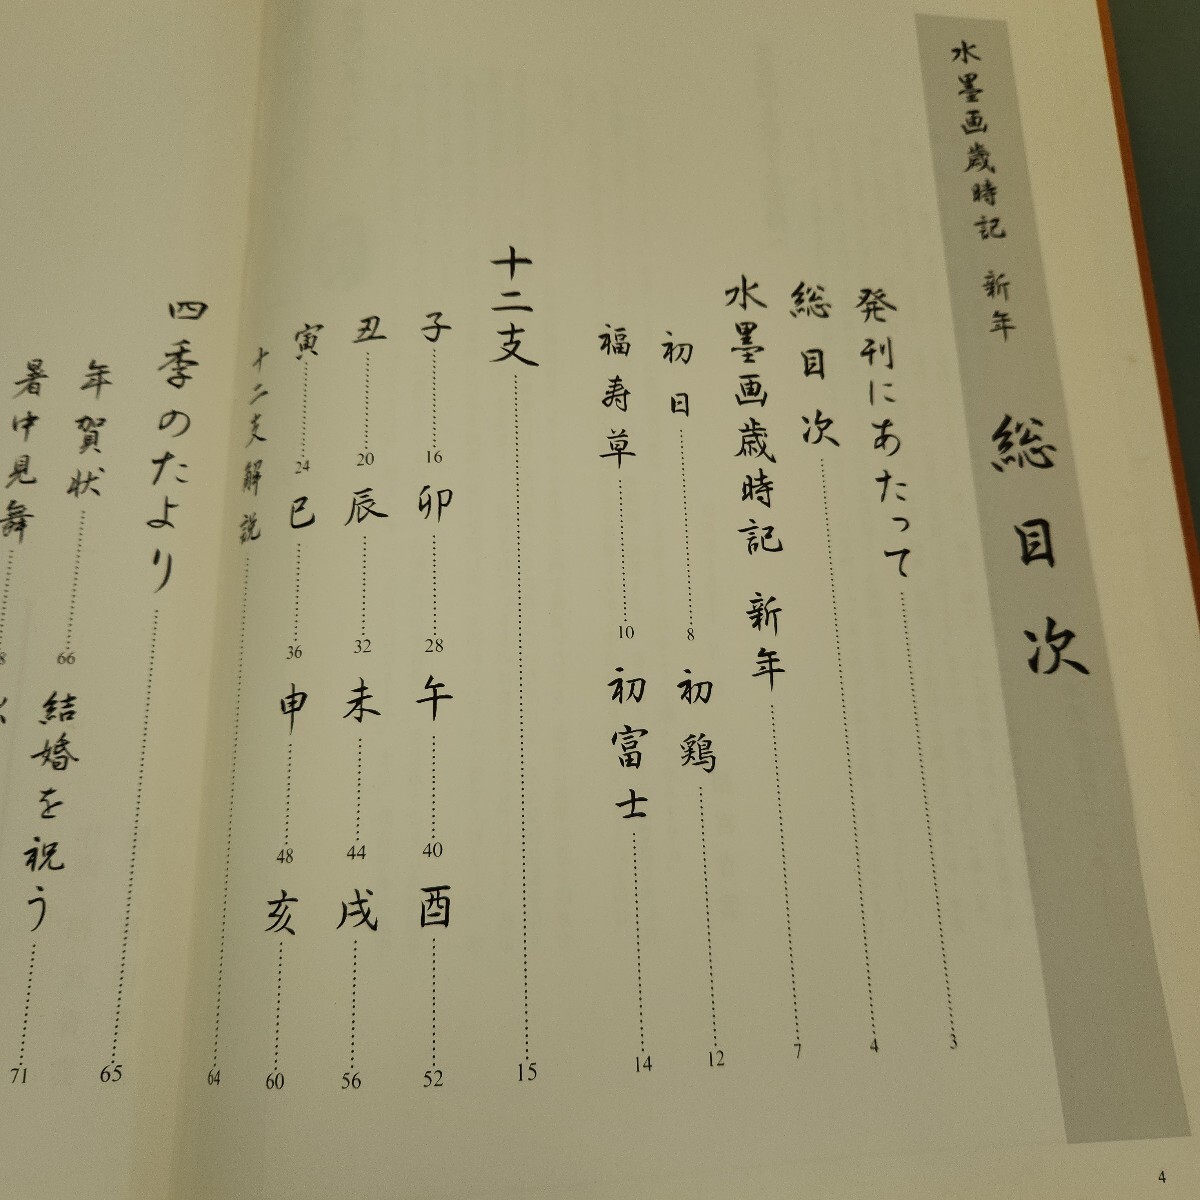 水墨画歳時記 新年 総目次
発刊にあたって 3
総目次 4
水墨画歳時記 新年 7
初日 8
初鶏 12
福寿草 10
初富士 14
十二支 15
子 16
卯 28
午 40
酉 52
丑 20
辰 32
未 44
戌 56
寅 24
巳 36
申 48
亥 60
十二支解説 64
四季のたより 65
年賀状 66
結婚を祝う 71
暑中見舞
4